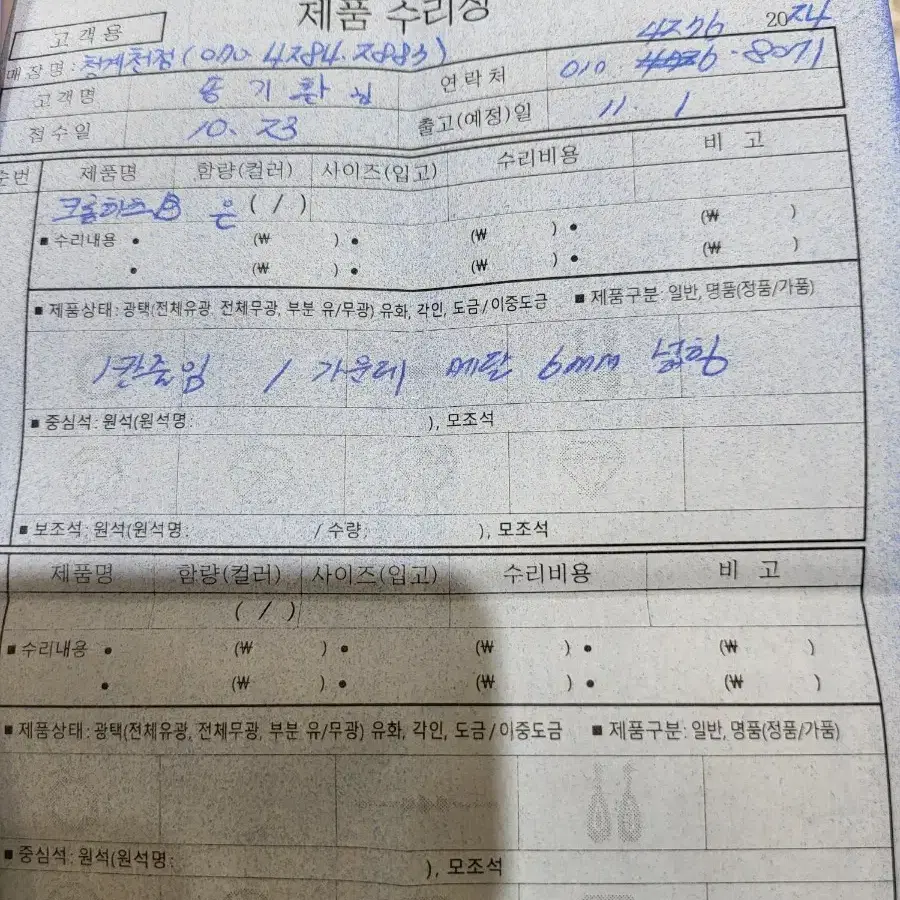 제품 수리장
고객용
4276 2024
매장명: 청계천점 (070. 4284. 2883)
고객명 송기환 님 연락처 010 8071
접수일 10. 23 출고(예정)일 11. 1
순번 제품명 함량(컬러) 사이즈(입고) 수리비용 비 고
크롬하츠 B 은 ( / )
■ 수리내용 • (₩ ) • (₩ ) • (₩ )
• (₩ ) • (₩ ) • (₩ )
■ 제품상태 : 광택(전체유광, 전체무광, 부분 유/무광) 유화, 각인, 도금/이중도금 ■ 제품구분: 일반, 명품(정품/가품)
1칸줄임 / 가운데 메달 6mm 넓힘
■ 중심석 : 원석(원석명: ), 모조석
■ 보조석 : 원석(원석명: / 수량; ), 모조석
제품명 함량(컬러) 사이즈(입고) 수리비용 비 고
( / )
■ 수리내용 • (₩ ) • (₩ ) • (₩ )
• (₩ ) • (₩ ) • (₩ )
■ 제품상태 : 광택(전체유광, 전체무광, 부분 유/무광) 유화, 각인, 도금/이중도금 ■ 제품구분: 일반, 명품(정품/가품)
■ 중심석 : 원석(원석명: ), 모조석